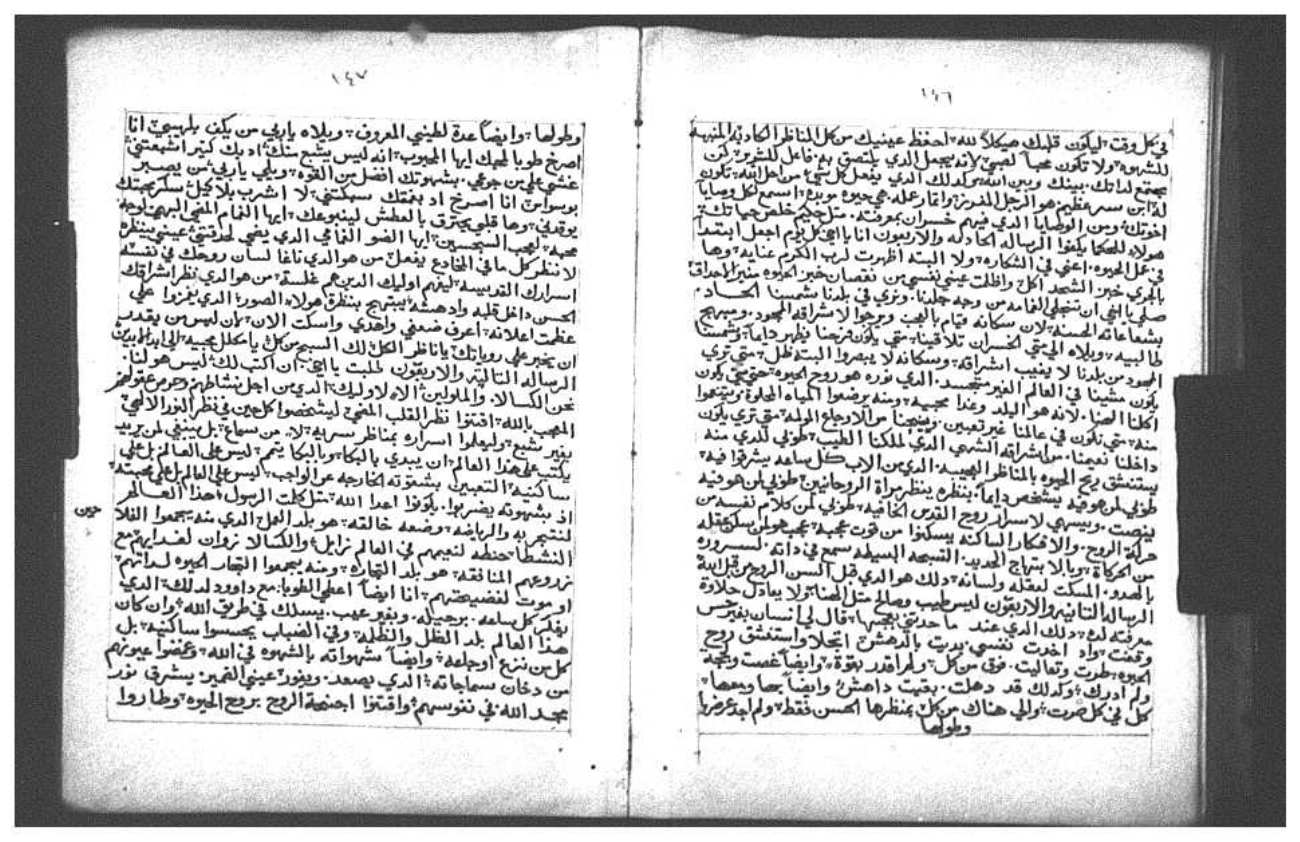 ١٤٦
في كل وقت ليكون قلبك هيكلاً لله احفظ عينيك من كل المناظر الكادبه المنبهه
للشهوه ولا تكون محباً لصبي لانه يجعل الدي يلتصق به فاعل للشرير كن
يجتمع لداتك بينك وبين الله وكدلك الدي يفعل كل شيء من اجل الله تكون
له ابن سر عظيم هو الرجل المفرز واتمار عمله هي حيوه موبده اسمع لكل وصايا
اخوتك ومن الوصايا الدي فيهم خسران بمعرفته متل حكيم خلص حياتك
هولاء للحكما يكفوا الرساله الحاديه والاربعون انا يا اخي كل يوم اجعل ابتدا
في عمل الحيوه اعني في الشكاره ولا البته اظهرت لرب الكرم عنايه وها
بالجري خبز الشهد اكل واظلت عيني نفسي من نقصان خبز الحيوه منير الاحداق
صلي يا اخي ان تنجلي الغمامه من وجه جلدنا ونري في بلدنا شمسنا الحاده
بشعاعاته الحسنه لان سكانه قيام بالعجب ومرجوا لاشراقه المجود ومبرهج
طالبيه وبلاه الي متي الخسران تلاقينا متي يكون فرحنا فيظهر دايماً وشمسنا
المجود من بلدنا لا يغيب اشراقه وسكانه لا يبصروا البته ظل متي تري
يكون مشينا في العالم الغير متجسد الدي نوره هو روح الحيوه حتي متي يكون
اكلنا الصنا لانه هو البلد وغدا محبيه ومنه يرضعوا المياه الحلوه ويتنعموا
منه متي نكون في عالمنا غير تعبين ونصحا من الاوجاع المولمه متي تري يكون
داخلنا نعيمنا من اشراقه الشهي الدي لملكنا الطيب طوبي للدي منه
يستنشق ريح الحيوه بالمناظر العجيبه الدي من الاب كل ساعه يشرقوا فيه
طوبي لمن هو فيه يشخص دايماً بنظره ينظر مراة الروحانيين طوبي لمن هو فيه
ينصت وبيسهي لاسرار روح القدس الخافيه طوبي لمن كلام نفسه من
حركة الروح والافكار الساكنه يسكنوا من قوت عجيبه عجب هو لمن سكن عقله
من الحركاة ويا بالابتهاج الجديد التسبحه البسيطه سمع في داته لسروره
بالهدو المسكت لعقله ولسانه دلك هو الدي قبل السن الروح من قبل الله
الرساله التانيه والاربعون ليس طيب وصالح متل الهنا ولا يعادل حلاوة
معرفته لده دلك الدي عند ما حدتني بعجبها قال لي انسان بغير حس
وقفت واد اخدت نفسي بديت بالدهش انجلا واستنشق روح
الحيوه طرت وتعاليت فوق من كل ولم اقدر بقوة وايضاً غصت ولجة
ولم ادرك وكدلك قد دهلت بقيت داهش وايضاً بها ومعها
كل في كل صرت والي هناك من كل بمنظرها الحسن فقط ولم اجد عرضها
وطولها
١٤٧
وطولها وايضاً عدة لطيني المعروف وبلاه ياربي من يكف بلهيبي انا
اصرخ طوبا لمحبك ايها المحبوب انه ليس يشبع منك اد بك كتير اشبعتني
عتشي علي من جوعي بشهوتك افضل من القوه وبلي ياربي من يصبر
بوسواس انا اصرخ اد بمقتك سبكتني لا اشرب بلا كيل سكر محبتك
يوقدني وها قلبي يحترق بالعطش لينبوعك ايها الغمام المضي البهي لوجه
محبه لعجب السبحسين ايها الضو الغمامي الدي يضي لحدقتي عيني بنظره
لا ننظر كل ما في المخادع يفعل من هو الدي ناغا لسان روحك في نفسه
اسرارك القديسه ليفهم اوليك الدين هم غلسة من هو الدي نظر اشراقك
الحسن داخل قلبه وادهشه يبتهج بنظرة هولاء الصور الدي يغمزوا علي
عظمت اعلانه اعرف ضعفي واهدي واسكت الان لان ليس من يقدر
ان يخبر علي روياتك يا ناظر الكل لك السبح من كل يا مكلل محبيه الي ابد الابدين
الرساله التالته والاربعون طلبت يا اخي ان اكتب لك ليس هو لنا
نحن الكسالا والملولين الا لاوليك الدي من اجل نشاطهم
المعجب بالله اقتنوا نظر القلب المضي ليشخصوا كل حين في نظر النور الالهي
بغير شبع وليعلموا اسراره بمناظر سريه لا من سماع بل ينبغي لمن يريد
يكتب علي هدا العالم ان يبدي بالبكا وبالبكا يتم ليس علي العالم بل علي
ساكنيه التعبين بشقوته الخارجه عن الواجب ليس علي العالم بل علي محبته
اد بشهوته يضربوا يكونوا اعدا الله متل كلمت الرسول هدا العالم حين
لنتجر به والرياضه وضعه خالقه هو بلد العمل الدي منه يجمعوا الفلا
النشطا حنطه لنعيمهم في العالم نزايل والكسالا نروان لعدابهم مع
زروعهم المنافقه هو بلد التجاره ومنه يجمعوا التجار الحيوه لداتهم
او موت لفضيحتهم انا ايضاً اعطي الطوبا مع داوود لدلك الدي
يفكر كل ساعه برحيله وبغير عيب يسلك في طريق الله وان كان
هدا العالم بلد الظل والظلمه وفي الضباب يحسسوا ساكنيه بل
كل من نزع اوجاعه وايضاً بشهواته بالشهوه في الله وغمضوا عيونهم
من دخان سماجاته الدي يصعد وبغور عيني الضمير يشرق نور
مجد الله في نفوسهم واقتنوا اجنحة الروح بروح الحيوه وطاروا